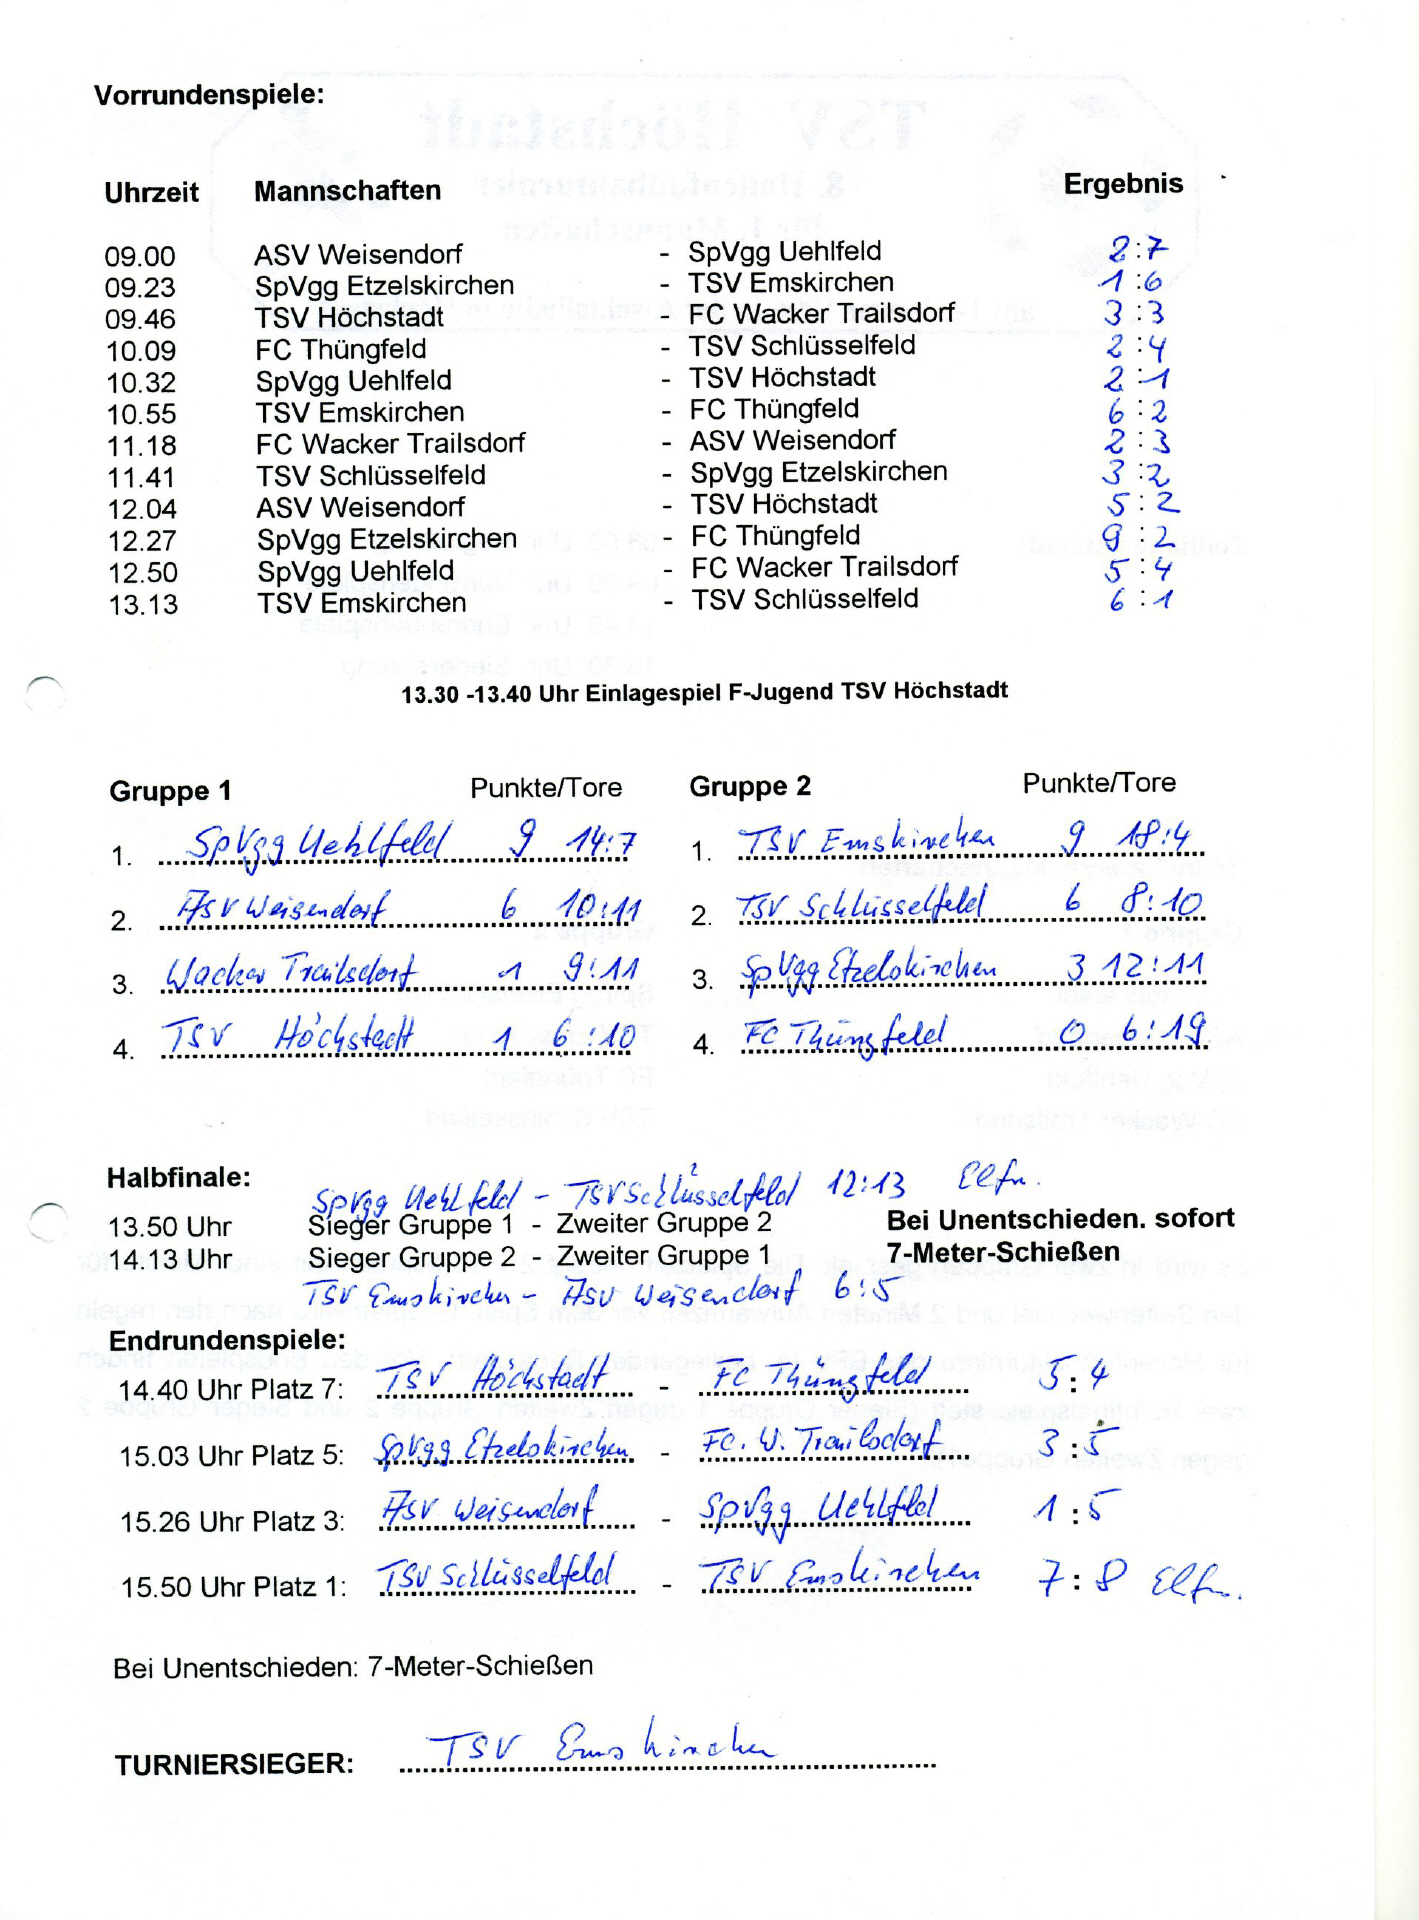 Vorrundenspiele:
Uhrzeit Mannschaften Ergebnis
09.00 ASV Weisendorf - SpVgg Uehlfeld 2:7
09.23 SpVgg Etzelskirchen - TSV Emskirchen 1:6
09.46 TSV Höchstadt - FC Wacker Trailsdorf 3:3
10.09 FC Thüngfeld - TSV Schlüsselfeld 2:4
10.32 SpVgg Uehlfeld - TSV Höchstadt 2:1
10.55 TSV Emskirchen - FC Thüngfeld 6:2
11.18 FC Wacker Trailsdorf - ASV Weisendorf 2:3
11.41 TSV Schlüsselfeld - SpVgg Etzelskirchen 3:2
12.04 ASV Weisendorf - TSV Höchstadt 5:2
12.27 SpVgg Etzelskirchen - FC Thüngfeld 9:2
12.50 SpVgg Uehlfeld - FC Wacker Trailsdorf 5:4
13.13 TSV Emskirchen - TSV Schlüsselfeld 6:1
13.30 -13.40 Uhr Einlagespiel F-Jugend TSV Höchstadt
Gruppe 1 Punkte/Tore Gruppe 2 Punkte/Tore
1. SpVgg Uehlfeld 9 14:7 1. TSV Emskirchen 9 18:4
2. ASV Weisendorf 6 10:11 2. TSV Schlüsselfeld 6 8:10
3. Wacker Trailsdorf 1 9:11 3. SpVgg Etzelskirchen 3 12:11
4. TSV Höchstadt 1 6:10 4. FC Thüngfeld 0 6:19
Halbfinale:
SpVgg Uehlfeld - TSV Schlüsselfeld 12:13 Elfm.
13.50 Uhr Sieger Gruppe 1 - Zweiter Gruppe 2 Bei Unentschieden. sofort
14.13 Uhr Sieger Gruppe 2 - Zweiter Gruppe 1 7-Meter-Schießen
TSV Emskirchen - ASV Weisendorf 6:5
Endrundenspiele:
14.40 Uhr Platz 7: TSV Höchstadt - FC Thüngfeld 5:4
15.03 Uhr Platz 5: SpVgg Etzelskirchen - FC. W. Trailsdorf 3:5
15.26 Uhr Platz 3: ASV Weisendorf - SpVgg Uehlfeld 1:5
15.50 Uhr Platz 1: TSV Schlüsselfeld - TSV Emskirchen 7:8 Elfm.
Bei Unentschieden: 7-Meter-Schießen
TURNIERSIEGER: TSV Emskirchen